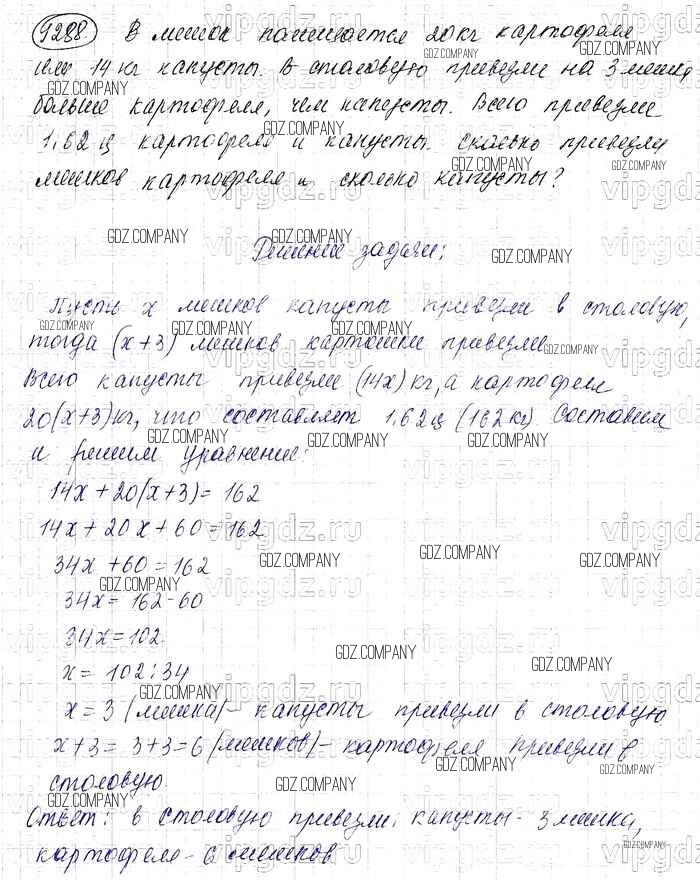 9288 В мешок помещается 20 кг картофеля
или 14 кг капусты. В столовую привезли на 3 мешка
больше картофеля, чем капусты. Всего привезли
1,62 ц картофеля и капусты. сколько привезли
мешков картофеля и сколько капусты?
Решение задачи:
Пусть x мешков капусты привезли в столовую,
тогда (x+3) мешков картошки привезли
Всего капусты привезли (14x) кг, а картофеля
20(x+3) кг, что составляет 1,62 ц (162 кг). Составим
и решим уравнение:
14x + 20(x+3) = 162
14x + 20x + 60 = 162
34x + 60 = 162
34x = 162 - 60
34x = 102
x = 102 : 34
x = 3 (мешка) - капусты привезли в столовую
x+3 = 3+3 = 6 (мешков) - картофеля привезли в
столовую.
Ответ: в столовую привезли: капусты - 3 мешка,
картофеля - 6 мешков
GDZ.COMPANY
vipgdz.ru